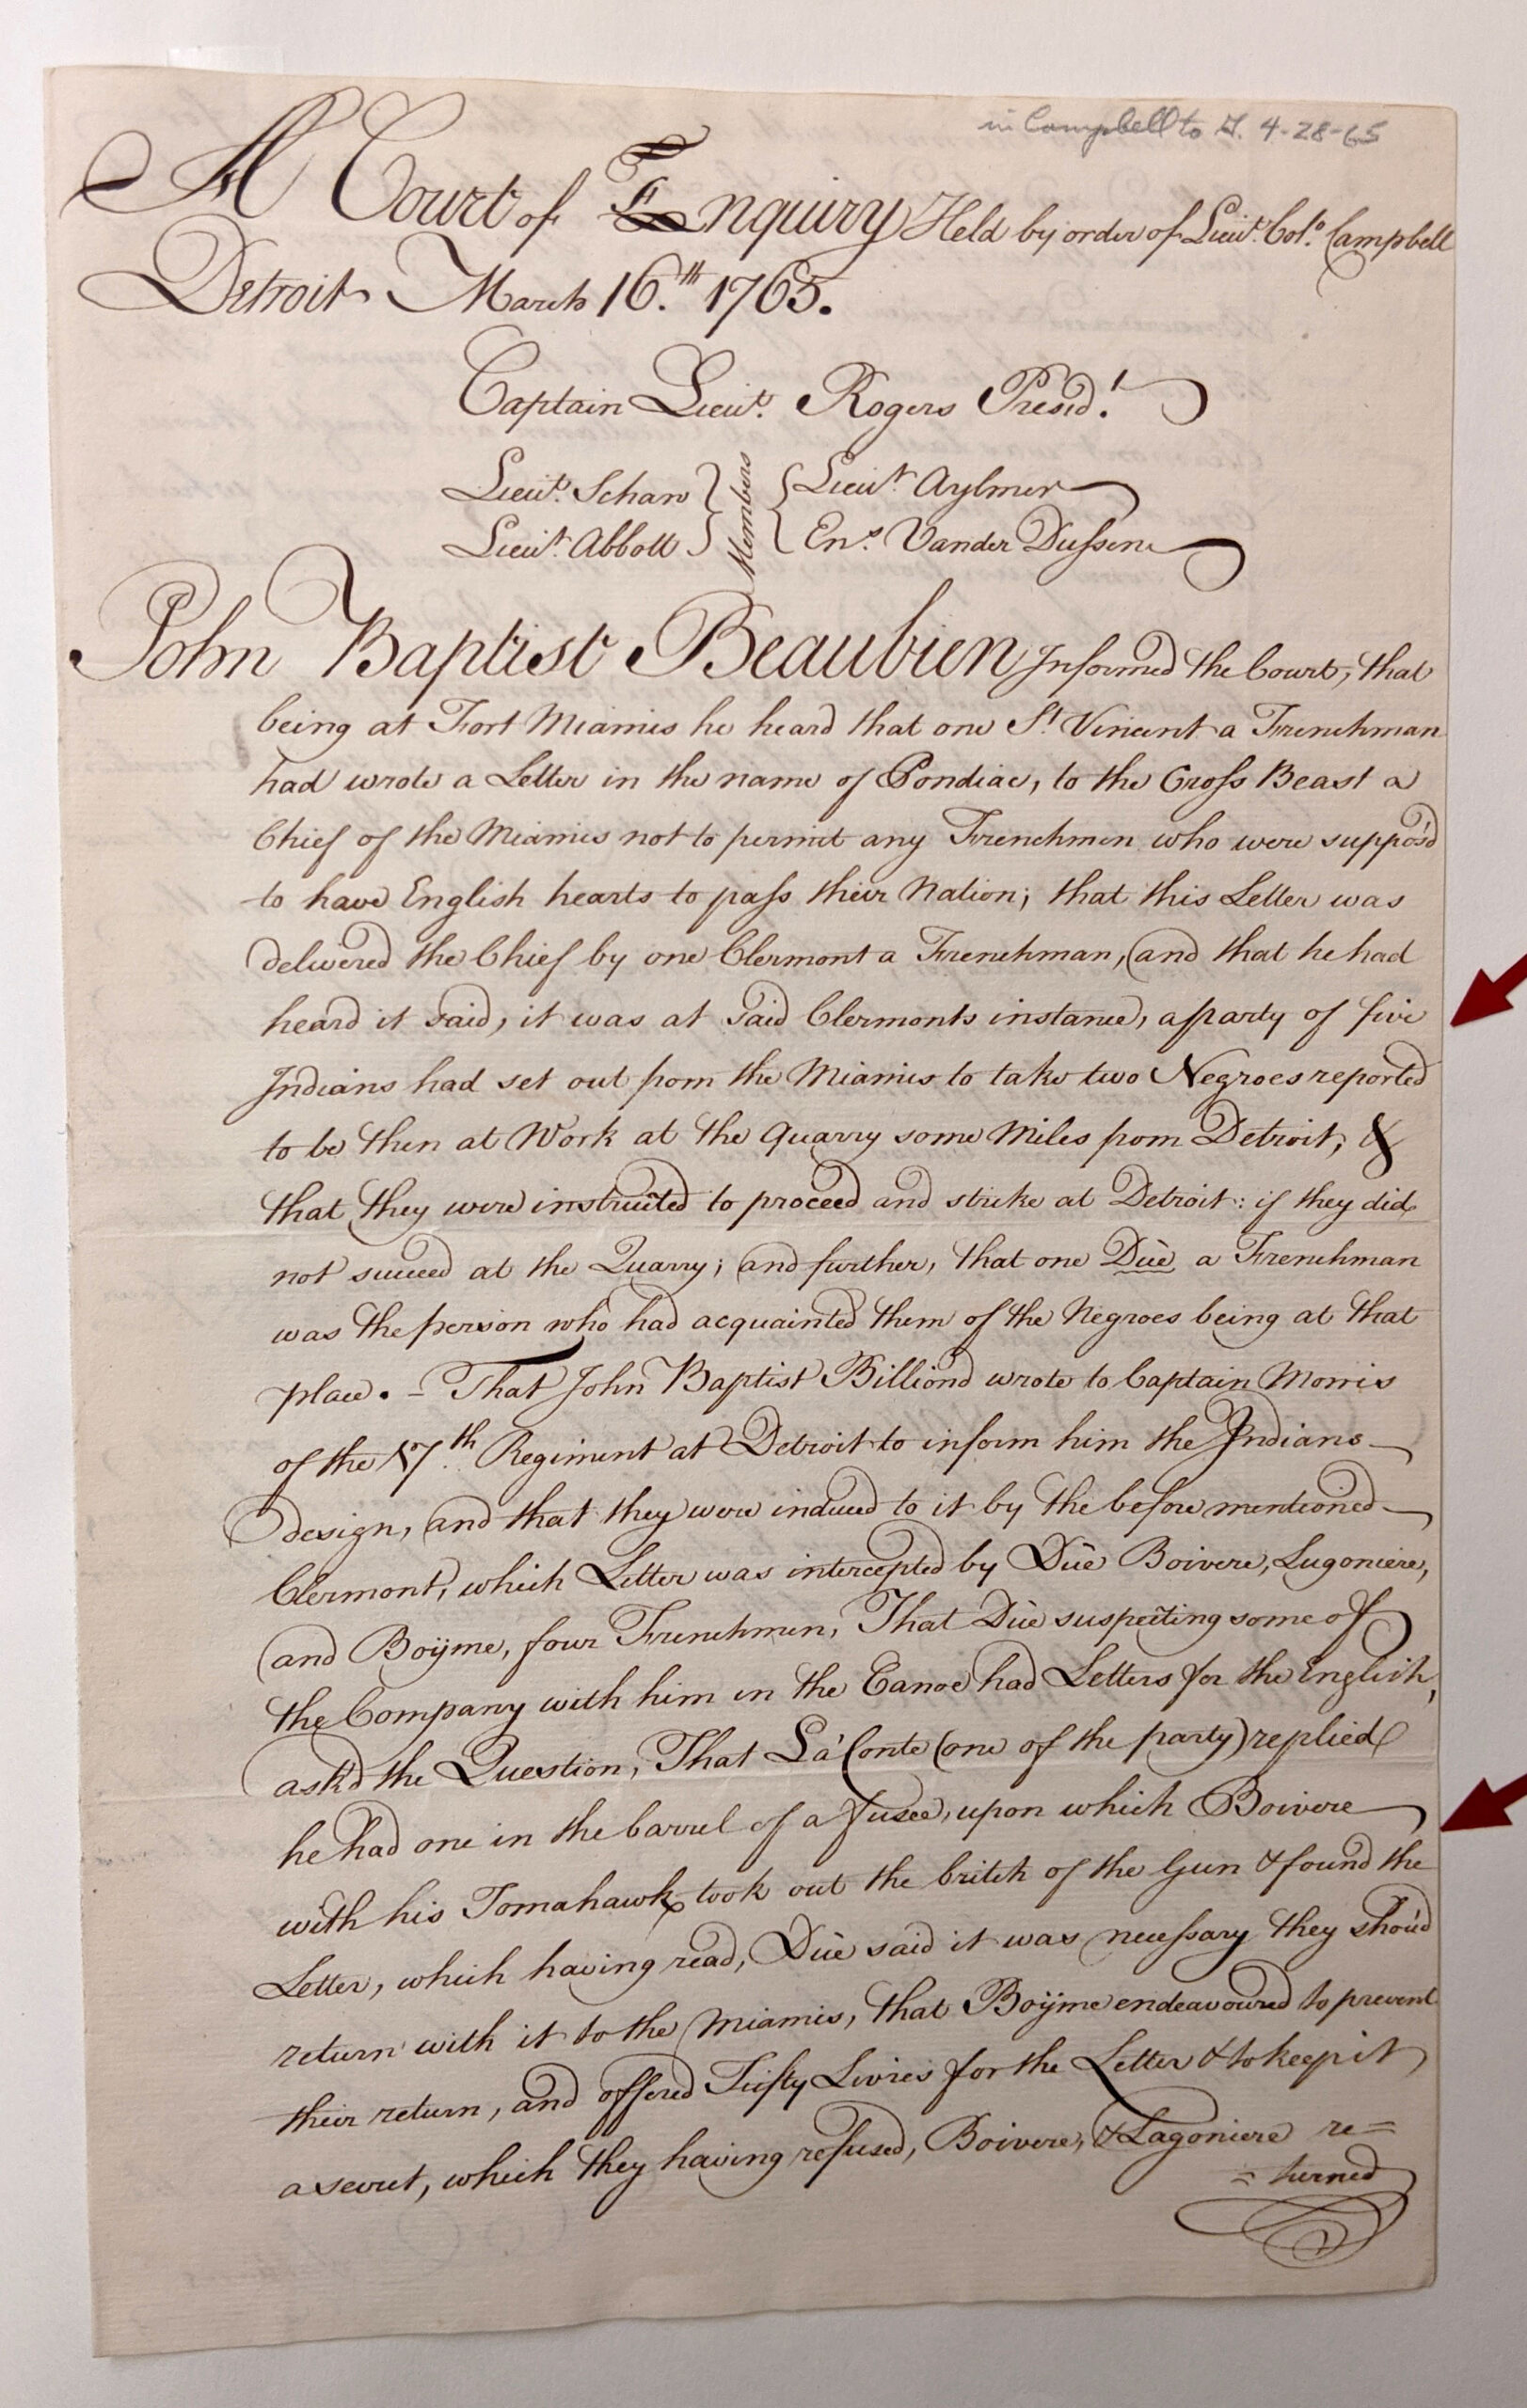 in Campbell to G. 4-28-65
A Court of Enquiry Held by order of Lieut. Colo. Campbell
Detroit March 16.th 1765.
Captain Lieut. Rogers Presid.t
Lieut. Schaw } Members { Lieut. Aylmer
Lieut. Abbott } { Ens. Vander Dussen
John Baptist Beaubien Informed the Court, that
being at Fort Miamis he heard that one St. Vincent a Frenchman
had wrote a Letter in the name of Pondiac, to the Cross Beast a
Chief of the Miamis not to permit any Frenchmen who were suppos'd
to have English hearts to pass their Nation; that this Letter was
delivered the Chief by one Clermont a Frenchman, and that he had
heard it said, it was at said Clermonts instance, a party of five
Indians had set out from the Miamis to take two Negroes reported
to be then at Work at the Quarry some Miles from Detroit, &
that they were instructed to proceed and strike at Detroit: if they did
not succeed at the Quarry; and further, that one Düe a Frenchman
was the person who had acquainted them of the Negroes being at that
place. - That John Baptist Billiond wrote to Captain Morris
of the 17.th Regiment at Detroit to inform him the Indians
design, and that they were induced to it by the before mentioned
Clermont, which Letter was intercepted by Düe Boivere, Lugoniere,
and Boÿme, four Frenchmen, That Düe suspecting some of
the Company with him in the Canoe had Letters for the English,
ask'd the Question, That La'Conte (one of the party) replied
he had one in the barrel of a fusee, upon which Boivere
with his Tomahawk took out the britch of the Gun & found the
Letter, which having read, Düe said it was necessary they shou'd
return with it to the Miamis, that Boÿme endeavoured to prevent
their return, and offered Fifty Livres for the Letter & to keep it
a secret, which they having refused, Boivere, & Lagoniere re=
=turned